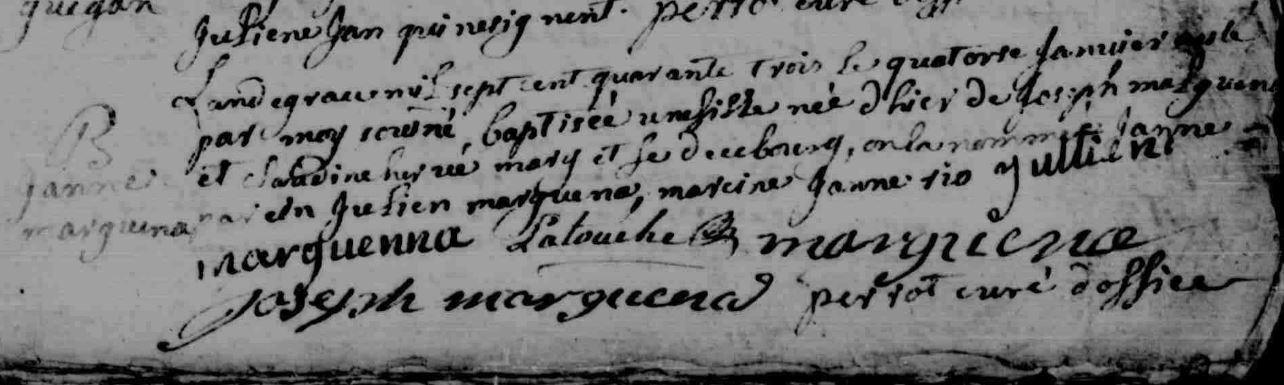 guegan
Juliene Jan qui ne signent. perrot curé
L'an de grace mil sept cent quarante trois le quatorse Janvier a esté
par moy sousné, baptiseé une fille neé d'hier de Joseph marquena
B et Claudine herveé mary et fe de ce bourg, on la nommeé Janne
Janne parein Julien marquena, mareine Janne rio Jullien
marquena
marquenna Latouche marquena
Joseph marquena perrot curé d'office